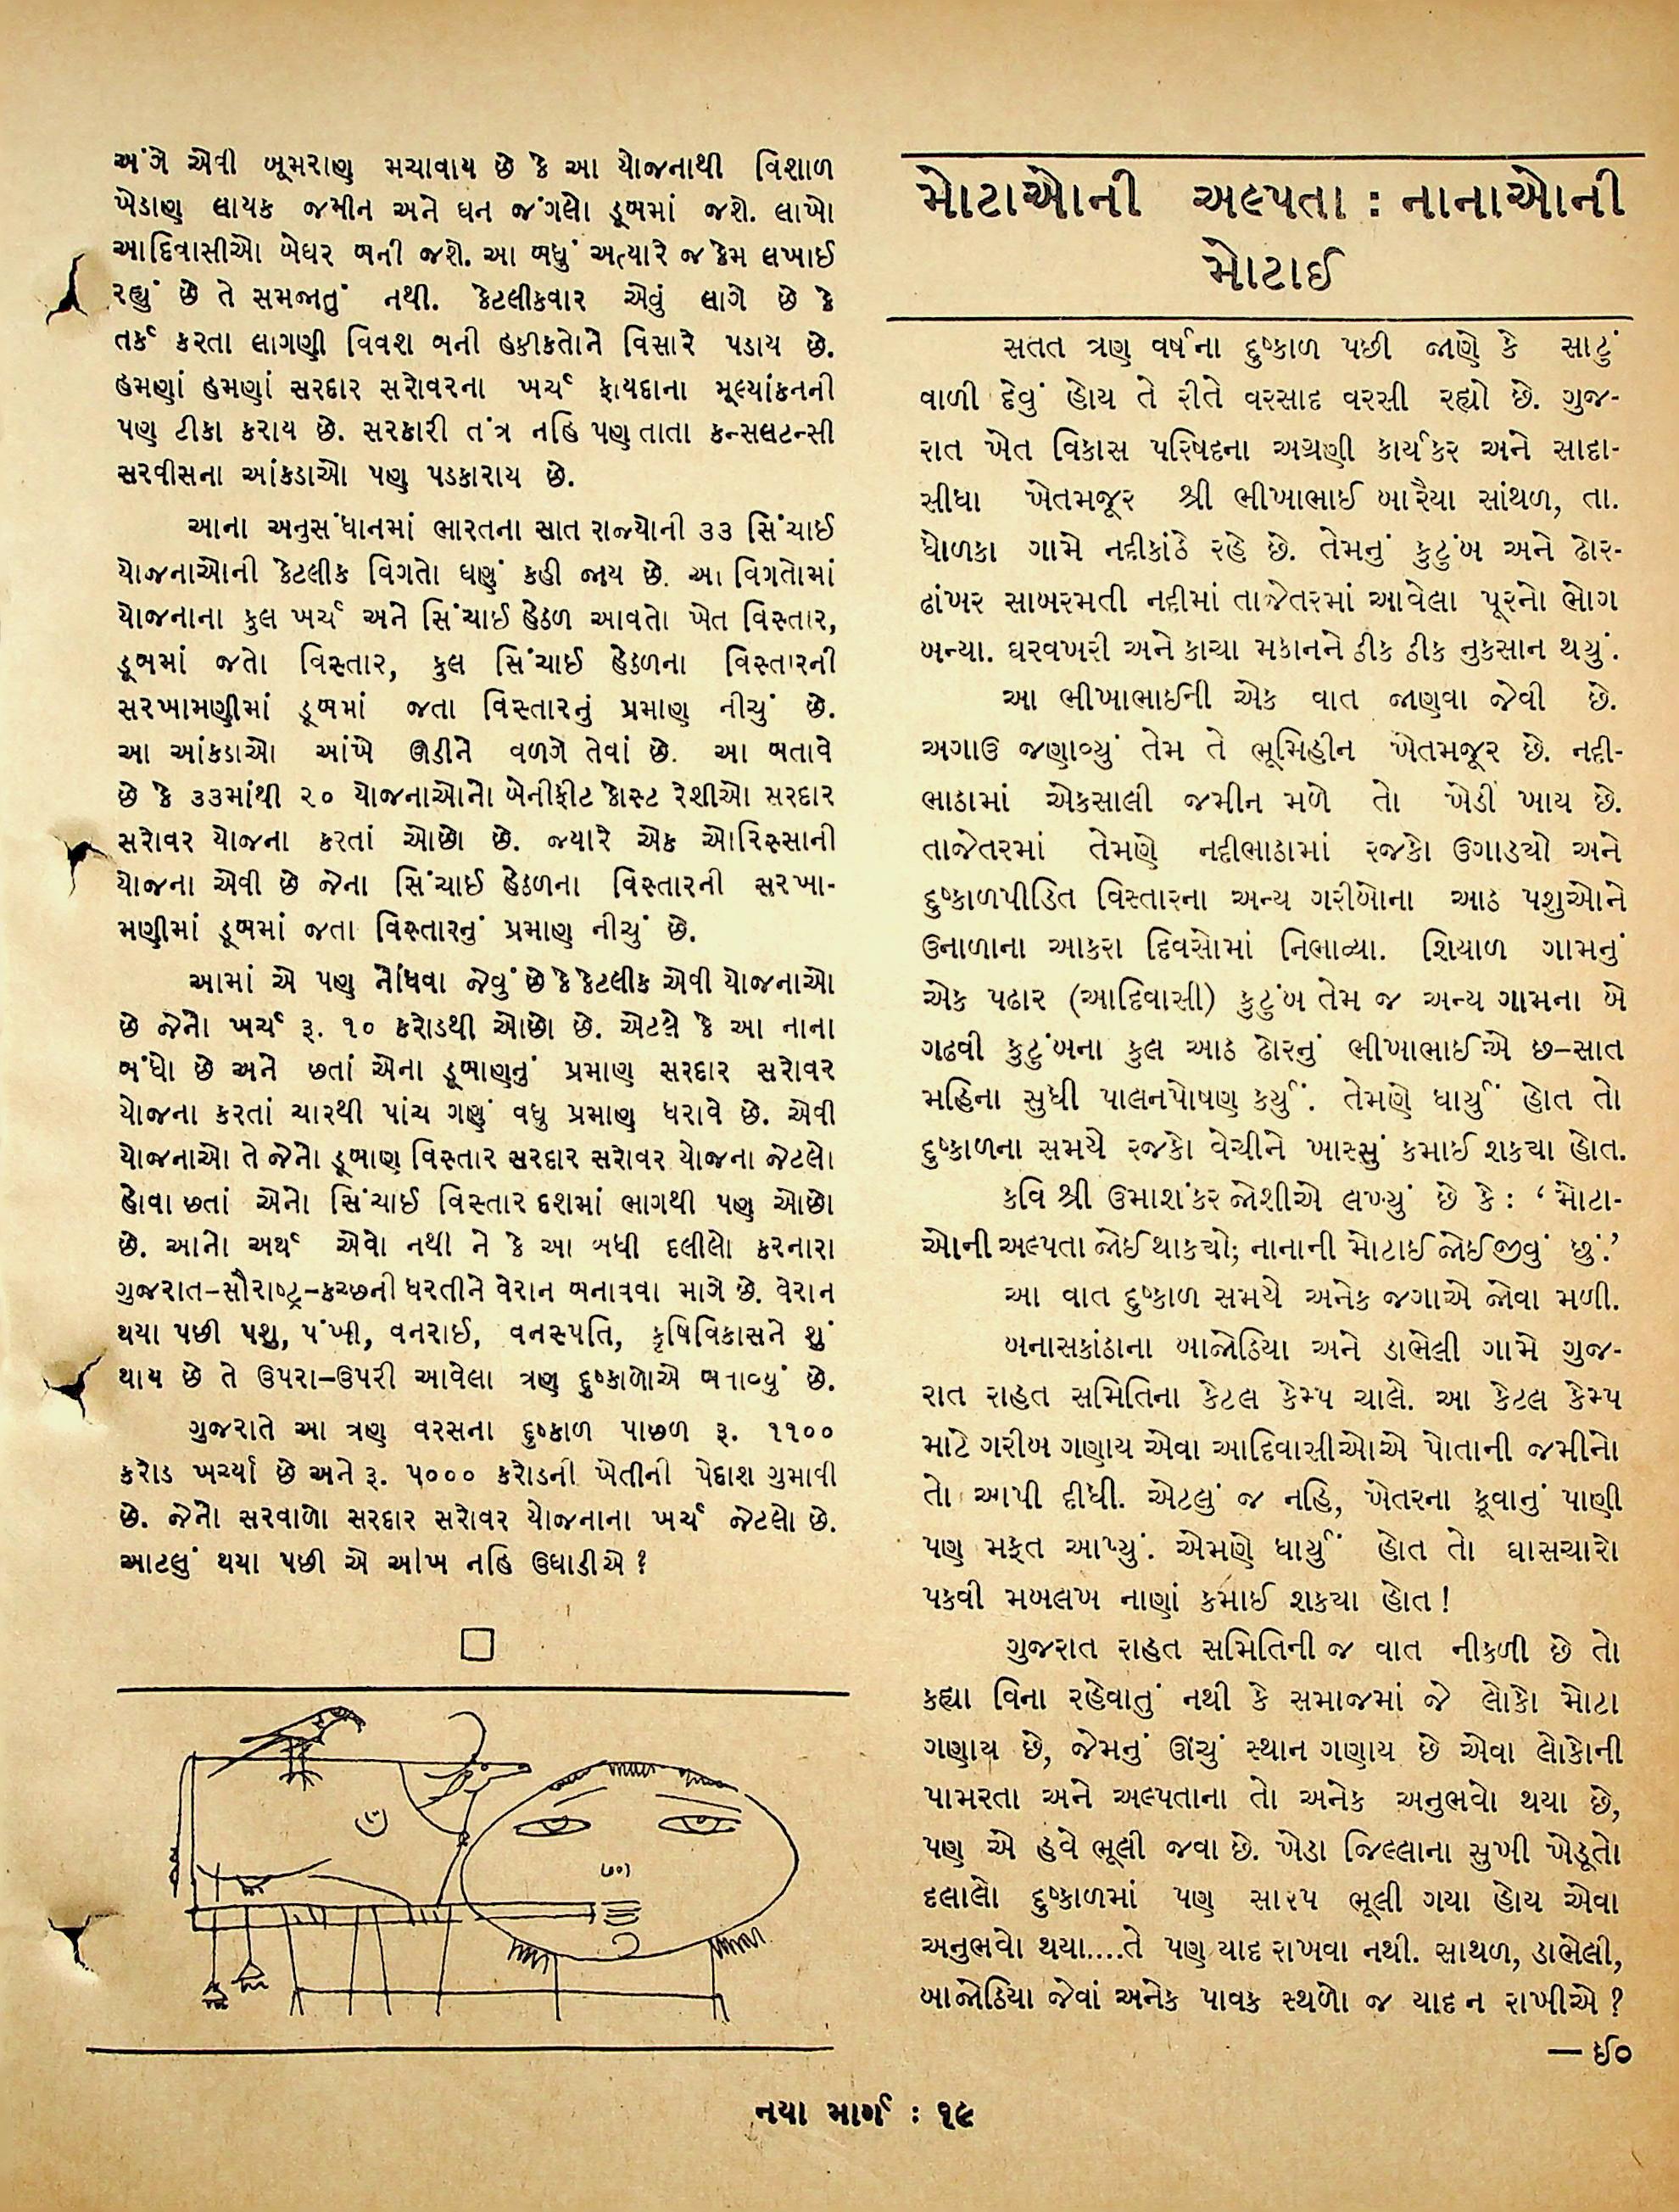 અંગે એવી બૂમરાણ મચાવાય છે કે આ યોજનાથી વિશાળ
ખેડાણ લાયક જમીન અને ઘન જંગલો ડૂબમાં જશે. લાખો
આદિવાસીઓ બેઘર બની જશે. આ બધું અત્યારે જ કેમ લખાઈ
રહ્યું છે તે સમજાતું નથી. કેટલીકવાર એવું લાગે છે કે
તર્ક કરતા લાગણી વિવશ બની હકીકતોને વિસારે પડાય છે.
હમણાં હમણાં સરદાર સરોવરના ખર્ચ ફાયદાના મૂલ્યાંકનની
પણ ટીકા કરાય છે. સરકારી તંત્ર નહિ પણ તાતા કન્સલટન્સી
સરવીસના આંકડાઓ પણ પડકારાય છે.
આના અનુસંધાનમાં ભારતના સાત રાજ્યોની ૩૩ સિંચાઈ
યોજનાઓની કેટલીક વિગતો ઘણું કહી જાય છે. આ વિગતોમાં
યોજનાના કુલ ખર્ચ અને સિંચાઈ હેઠળ આવતો ખેત વિસ્તાર,
ડૂબમાં જતો વિસ્તાર, કુલ સિંચાઈ હેઠળના વિસ્તારની
સરખામણીમાં ડૂબમાં જતા વિસ્તારનું પ્રમાણ નીચું છે.
આ આંકડાઓ આંખે ઊડીને વળગે તેવાં છે. આ બતાવે
છે કે ૩૩માંથી ૨૦ યોજનાઓનો બેનીફીટ કોસ્ટ રેશીઓ સરદાર
સરોવર યોજના કરતાં ઓછો છે. જ્યારે એક ઓરિસ્સાની
યોજના એવી છે જેના સિંચાઈ હેઠળના વિસ્તારની સરખા-
મણીમાં ડૂબમાં જતા વિસ્તારનું પ્રમાણ નીચું છે.
આમાં એ પણ નોંધવા જેવું છે કે કેટલીક એવી યોજનાઓ
છે જેનો ખર્ચ રૂ. ૧૦ કરોડથી ઓછો છે. એટલે કે આ નાના
બંધો છે અને છતાં એના ડૂબાણનું પ્રમાણ સરદાર સરોવર
યોજના કરતાં ચારથી પાંચ ગણું વધુ પ્રમાણ ધરાવે છે. એવી
યોજનાઓ તે જેનો ડૂબાણ વિસ્તાર સરદાર સરોવર યોજના જેટલો
હોવા છતાં એનો સિંચાઈ વિસ્તાર દશમાં ભાગથી પણ ઓછો
છે. આનો અર્થ એવો નથી ને કે આ બધી દલીલો કરનારા
ગુજરાત-સૌરાષ્ટ્ર-કચ્છની ધરતીને વેરાન બનાવવા માગે છે. વેરાન
થયા પછી પશુ, પંખી, વનરાઈ, વનસ્પતિ, કૃષિવિકાસને શું
થાય છે તે ઉપરા-ઉપરી આવેલા ત્રણ દુષ્કાળોએ બતાવ્યું છે.
ગુજરાતે આ ત્રણ વરસના દુષ્કાળ પાછળ રૂ. ૧૧૦૦
કરોડ ખર્ચ્યાં છે અને રૂ. ૫૦૦૦ કરોડની ખેતીની પેદાશ ગુમાવી
છે. જેનો સરવાળો સરદાર સરોવર યોજનાના ખર્ચ જેટલો છે.
આટલું થયા પછી એ આંખ નહિ ઉઘાડીએ ?
મોટાઓની અલ્પતા : નાનાઓની
મોટાઈ
સતત ત્રણ વર્ષના દુષ્કાળ પછી જાણે કે સાટું
વાળી દેવું હોય તે રીતે વરસાદ વરસી રહ્યો છે. ગુજ-
રાત ખેત વિકાસ પરિષદના અગ્રણી કાર્યકર અને સાદા-
સીધા ખેતમજૂર શ્રી ભીખાભાઈ બારૈયા સાંથળ, તા.
ધોળકા ગામે નદીકાંઠે રહે છે. તેમનું કુટુંબ અને ઢોર-
ઢાંખર સાબરમતી નદીમાં તાજેતરમાં આવેલા પૂરનો ભોગ
બન્યા. ઘરવખરી અને કાચા મકાનને ઠીક ઠીક નુકસાન થયું.
આ ભીખાભાઈની એક વાત જાણવા જેવી છે.
અગાઉ જણાવ્યું તેમ તે ભૂમિહીન ખેતમજૂર છે. નદી-
ભાઠામાં એકસાલી જમીન મળે તો ખેડી ખાય છે.
તાજેતરમાં તેમણે નદીભાઠામાં રજકો ઉગાડ્યો અને
દુષ્કાળપીડિત વિસ્તારના અન્ય ગરીબોના આઠ પશુઓને
ઉનાળાના આકરા દિવસોમાં નિભાવ્યા. શિયાળ ગામનું
એક પઢાર (આદિવાસી) કુટુંબ તેમ જ અન્ય ગામના બે
ગઢવી કુટુંબના કુલ આઠ ઢોરનું ભીખાભાઈએ છ-સાત
મહિના સુધી પાલનપોષણ કર્યું. તેમણે ધાર્યું હોત તો
દુષ્કાળના સમયે રજકો વેચીને ખાસ્સું કમાઈ શકયા હોત.
કવિ શ્રી ઉમાશંકર જોશીએ લખ્યું છે કે : ‘ મોટા-
ઓની અલ્પતા જોઈ થાકયો; નાનાની મોટાઈ જોઈ જીવું છું.’
આ વાત દુષ્કાળ સમયે અનેક જગાએ જોવા મળી.
બનાસકાંઠાના બાજોઠિયા અને ડાભેલી ગામે ગુજ-
રાત રાહત સમિતિના કેટલ કેમ્પ ચાલે. આ કેટલ કેમ્પ
માટે ગરીબ ગણાય એવા આદિવાસીઓએ પોતાની જમીનો
તો આપી દીધી. એટલું જ નહિ, ખેતરના કૂવાનું પાણી
પણ મફત આપ્યું. એમણે ધાર્યું હોત તો ઘાસચારો
પકવી મબલખ નાણાં કમાઈ શકયા હોત !
ગુજરાત રાહત સમિતિની જ વાત નીકળી છે તો
કહ્યા વિના રહેવાતું નથી કે સમાજમાં જે લોકો મોટા
ગણાય છે, જેમનું ઊંચું સ્થાન ગણાય છે એવા લોકોની
પામરતા અને અલ્પતાના તો અનેક અનુભવો થયા છે,
પણ એ હવે ભૂલી જવા છે. ખેડા જિલ્લાના સુખી ખેડૂતો
દલાલો દુષ્કાળમાં પણ સારપ ભૂલી ગયા હોય એવા
અનુભવો થયા....તે પણ યાદ રાખવા નથી. સાથળ, ડાભેલી,
બાજોઠિયા જેવાં અનેક પાવક સ્થળો જ યાદ ન રાખીએ ?
— ઈ૦
નયા માર્ગ : ૧૯